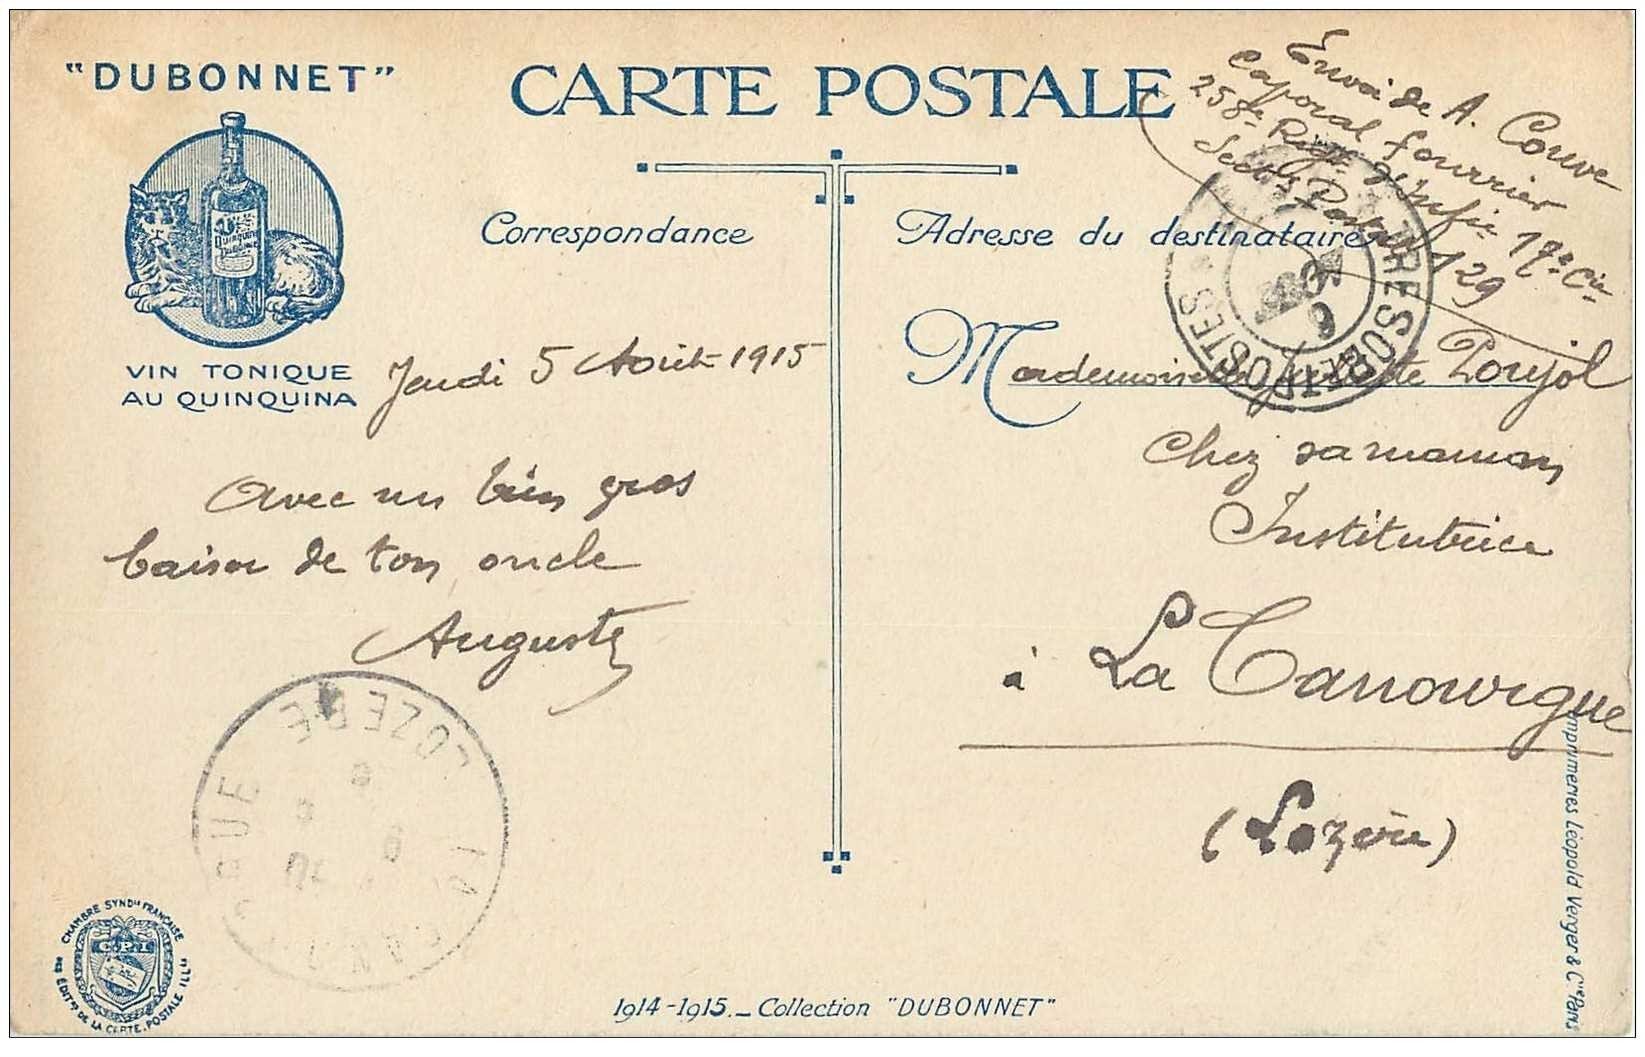 "DUBONNET"
VIN TONIQUE
AU QUINQUINA
CARTE POSTALE
Correspondance
Jeudi 5 Août 1915
Avec un bien gros
baiser de ton oncle
Auguste
Envoi de A. Couve
Caporal fourrier
258e Regt d'Infie 19e Cie
Sectr Postal 129
Adresse du destinataire
Mademoiselle Poujol
Chez sa maman
Institutrice
à La Canourgue
(Lozère)
TRESOR ET POSTES
LOZERE
CHAMBRE SYNDle FRANÇAISE
des EDITrs DE LA CARTE POSTALE ILLée
1914-1915._ Collection "DUBONNET"
Imprimeries Léopold Verger & Cie Paris